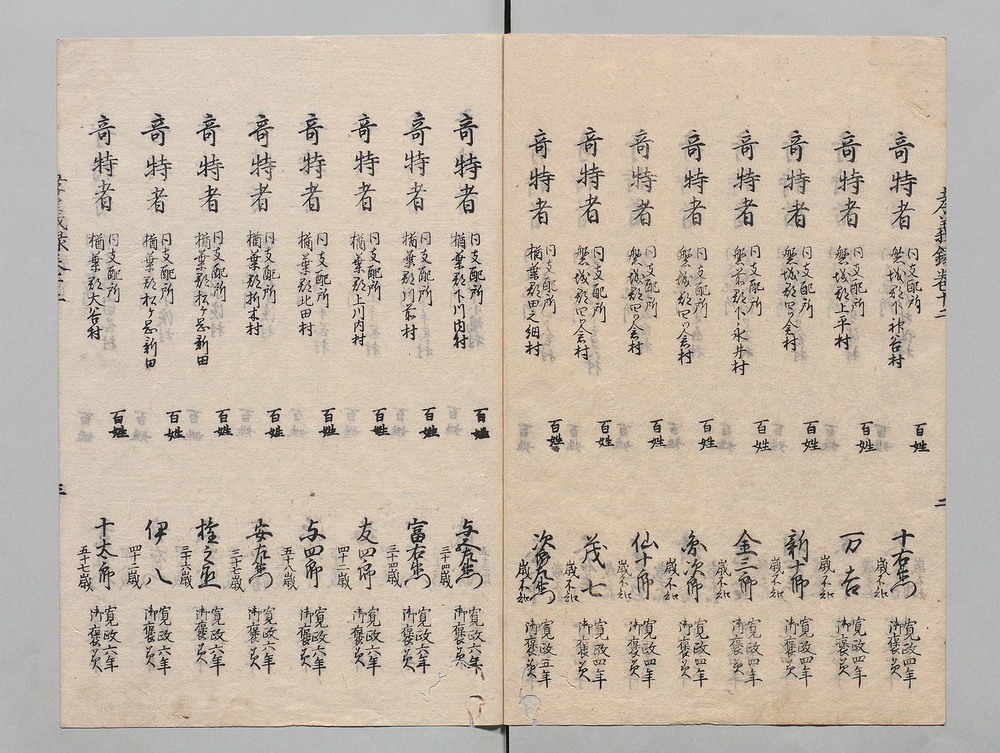 孝義録巻十二
奇特者
同支配所
磐城郡下神谷村
百姓
十右衛門
歳不知
寛政四年
御褒美
奇特者
同支配所
磐城郡上平村
百姓
万吉
歳不知
寛政四年
御褒美
奇特者
同支配所
磐城郡四ツ倉村
百姓
新十郎
歳不知
寛政四年
御褒美
奇特者
同支配所
磐前郡下永井村
百姓
金三郎
歳不知
寛政四年
御褒美
奇特者
同支配所
磐城郡四ツ倉村
百姓
次郎
歳不知
寛政四年
御褒美
奇特者
同支配所
磐城郡四ツ倉村
百姓
仙十郎
歳不知
寛政四年
御褒美
奇特者
同支配所
磐城郡四ツ倉村
百姓
茂七
歳不知
寛政四年
御褒美
奇特者
同支配所
楢葉郡田之網村
百姓
次郎左衛門
歳不知
寛政五年
御褒美
二
奇特者
同支配所
楢葉郡下川内村
百姓
与五右衛門
三十四歳
寛政六年
御褒美
奇特者
同支配所
楢葉郡川前村
百姓
富右衛門
三十四歳
寛政六年
御褒美
奇特者
同支配所
楢葉郡上川内村
百姓
友四郎
四十二歳
寛政六年
御褒美
奇特者
同支配所
楢葉郡北田村
百姓
与四郎
五十八歳
寛政六年
御褒美
奇特者
同支配所
楢葉郡折木村
百姓
安左衛門
三十七歳
寛政六年
御褒美
奇特者
同支配所
楢葉郡松ケ岡新田
百姓
之丞
三十六歳
寛政六年
御褒美
奇特者
同支配所
楢葉郡松ケ岡新田
百姓
伊八
四十二歳
寛政六年
御褒美
奇特者
同支配所
楢葉郡大谷村
百姓
十太郎
五十七歳
寛政六年
御褒美
孝義録巻十二
三